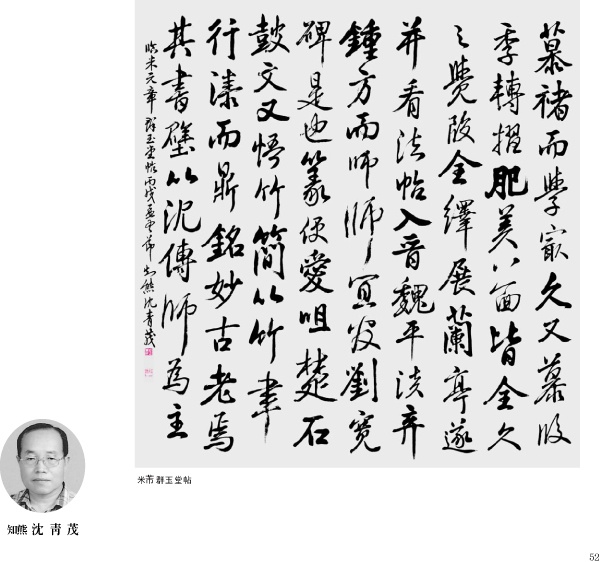 慕褚而學寂久又慕段
季轉摺肥美八面皆全久
々覺段全繹展蘭亭遂
并看法帖入晉魏平淡弃
鍾方而師師宜官劉寬
碑是也篆便愛咀楚石
鼓文又悟竹簡以竹聿
行漆而鼎銘妙古老焉
其書壁以沈傳師為主
臨米元章群玉堂帖丙戌孟節知熊沈青茂
米芾 群玉堂帖
知熊 沈靑茂
52